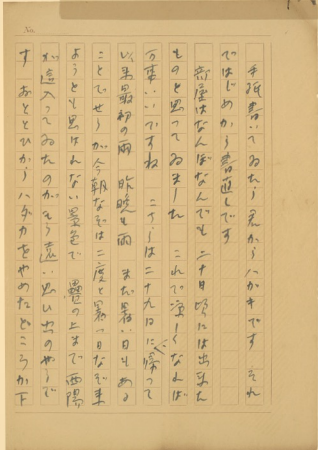 No.
手紙書いてゐたら君からハガキです それ
ではじめから書直しです
部屋はなんぼなんでも二十日頃には出来た
ものと思ってゐました これで涼しくなれば
万事いいですね 二十八日二十九日に帰って
以来最初の雨 昨晩も雨 まだ暑い日もある
ことでせうが今朝などは二度と暑い日など来
ようとも思はれない景色で 畳の上まで西陽
が這入ってゐたのがもう遠い思い出のやうで
す おとといからハダカをやめたところが下